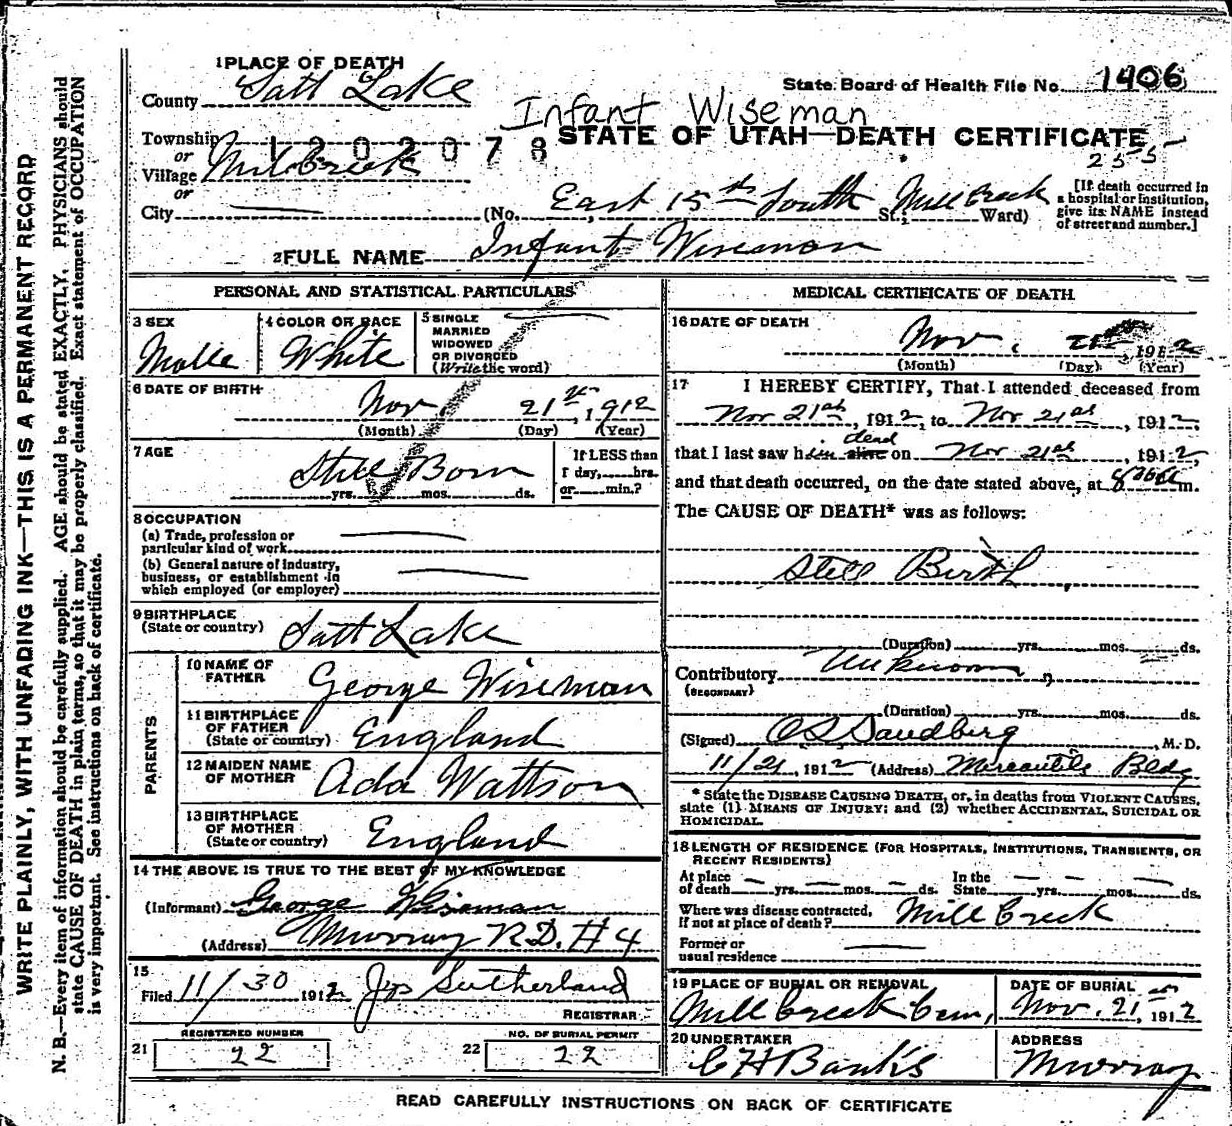 1 PLACE OF DEATH
County Salt Lake
State Board of Health File No. 1406
Infant Wiseman
Township or Village Mill Creek
1202078
STATE OF UTAH—DEATH CERTIFICATE
255
or City
(No. East 15th South St.; Mill Creek Ward)
[If death occurred in
a hospital or institution,
give its NAME instead
of street and number.]
2 FULL NAME Infant Wiseman
PERSONAL AND STATISTICAL PARTICULARS
3 SEX
Malle
4 COLOR OR RACE
White
5 SINGLE
MARRIED
WIDOWED
OR DIVORCED
(Write the word)
6 DATE OF BIRTH
Nov 21st, 1912
(Month) (Day) (Year)
7 AGE
Still Born
yrs. mos. ds.
If LESS than
1 day, hrs.
or min.?
8 OCCUPATION
(a) Trade, profession or
particular kind of work
(b) General nature of industry,
business, or establishment in
which employed (or employer)
9 BIRTHPLACE
(State or country) Salt Lake
PARENTS
10 NAME OF
FATHER George Wiseman
11 BIRTHPLACE
OF FATHER
(State or country) England
12 MAIDEN NAME
OF MOTHER Ada Wattson
13 BIRTHPLACE
OF MOTHER
(State or country) England
14 THE ABOVE IS TRUE TO THE BEST OF MY KNOWLEDGE
(Informant) George Wiseman
(Address) Murray R.D. #4
15
Filed 11/30 1912 Jos Sutherland
REGISTRAR
REGISTERED NUMBER
21 22
NO. OF BURIAL PERMIT
22 22
MEDICAL CERTIFICATE OF DEATH
16 DATE OF DEATH
Nov. 21, 1912
(Month) (Day) (Year)
17 I HEREBY CERTIFY, That I attended deceased from
Nov 21st, 1912, to Nov 21st, 1912,
that I last saw him alive dead on Nov 21st, 1912,
and that death occurred, on the date stated above, at m.
The CAUSE OF DEATH* was as follows:
Still Birth
(Duration) yrs. mos. ds.
Contributory Unknown
(SECONDARY)
(Duration) yrs. mos. ds.
(Signed) O S Sandberg, M. D.
11/21, 1912 (Address) Mercantile Bldg
* State the DISEASE CAUSING DEATH, or, in deaths from VIOLENT CAUSES,
state (1) MEANS OF INJURY; and (2) whether ACCIDENTAL, SUICIDAL OR
HOMICIDAL.
18 LENGTH OF RESIDENCE (FOR HOSPITALS, INSTITUTIONS, TRANSIENTS, OR
RECENT RESIDENTS)
At place
of death yrs. mos. ds.
In the
State yrs. mos. ds.
Where was disease contracted,
if not at place of death? Mill Creek
Former or
usual residence
19 PLACE OF BURIAL OR REMOVAL
Mill Creek Cem,
DATE OF BURIAL
Nov. 21st, 1912
20 UNDERTAKER
C H Banks
ADDRESS
Murray
READ CAREFULLY INSTRUCTIONS ON BACK OF CERTIFICATE
WRITE PLAINLY, WITH UNFADING INK—THIS IS A PERMANENT RECORD
N. B.—Every item of information should be carefully supplied. AGE should be stated EXACTLY. PHYSICIANS should
state CAUSE OF DEATH in plain terms, so that it may be properly classified. Exact statement of OCCUPATION
is very important. See instructions on back of certificate.